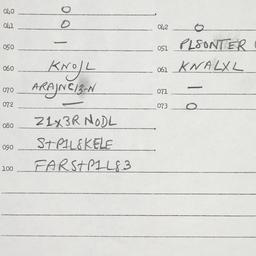 040 O
041 O 042 O
050 — 051 PL8ONTER
060 KNOJL 061 KNALXL
070 ARAJNG13-N 071 —
072 — 073 O
080 Z1X3R NODL
090 S+P1L8KELE
100 FARS+P1L83